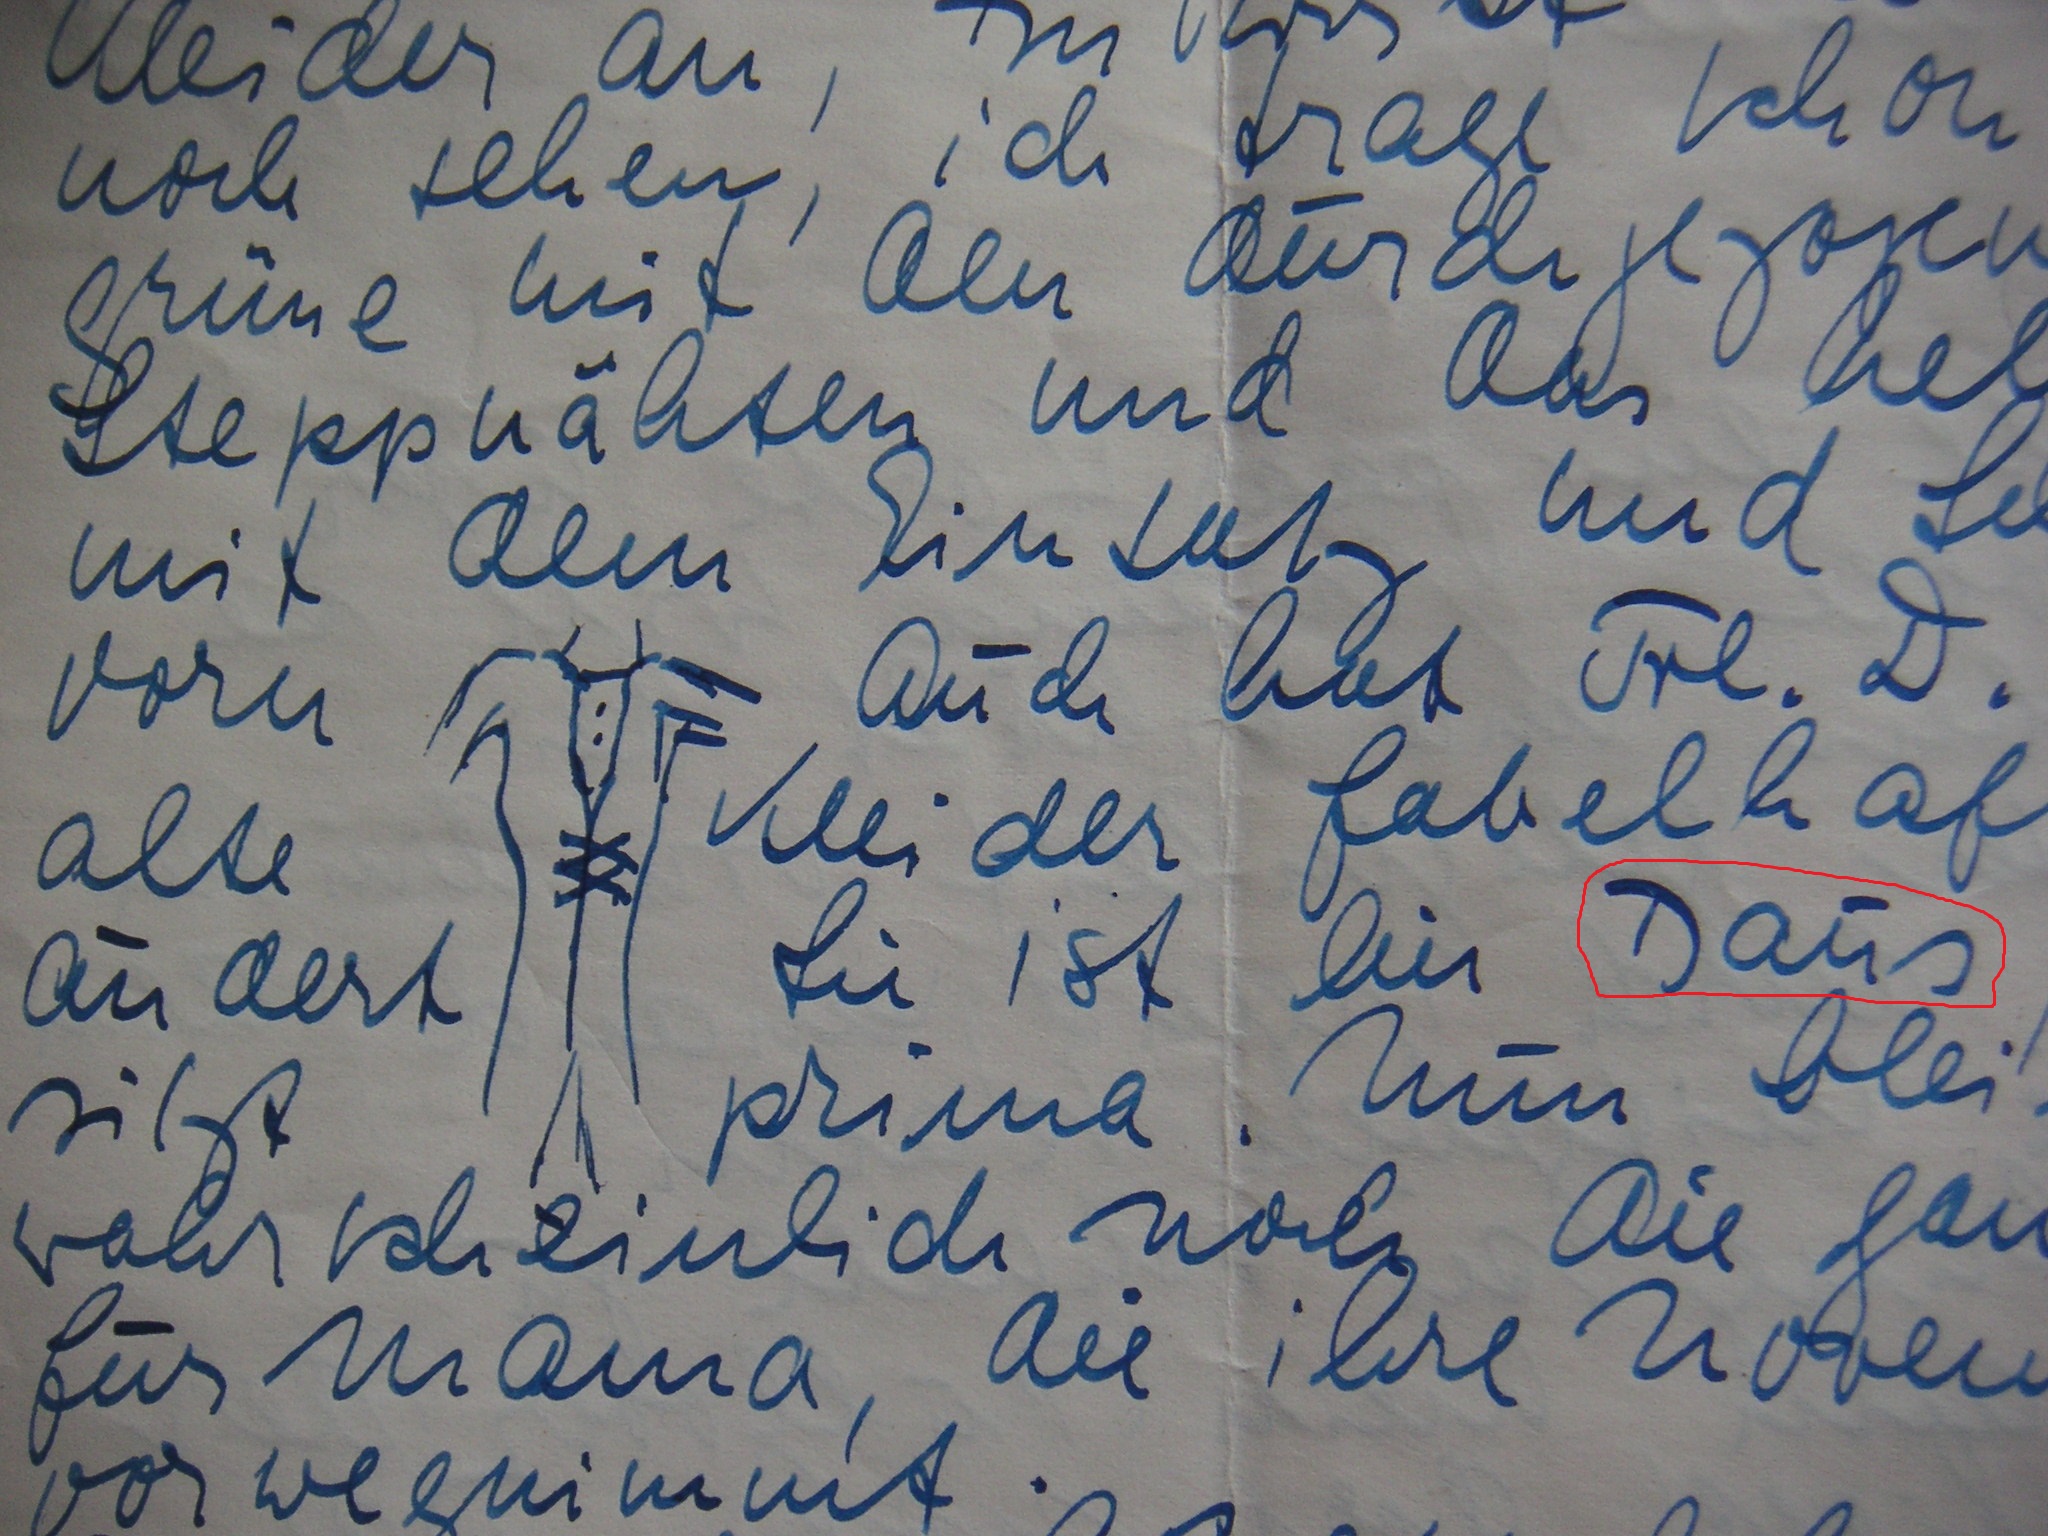 Kleider an, Du wirst
noch sehen, ich trage schon
grüne mit den durchgezogen
Steppnähten und das hel
mit dem Einsatz und
vorn Auch hat Frl. D.
alte Kleider fabelhaf
ändert Sie ist ein Daus
sitzt prima. Nun blei
wahrscheinlich noch die gan
für Mama, die ihre Noven
vorwegnimmt.